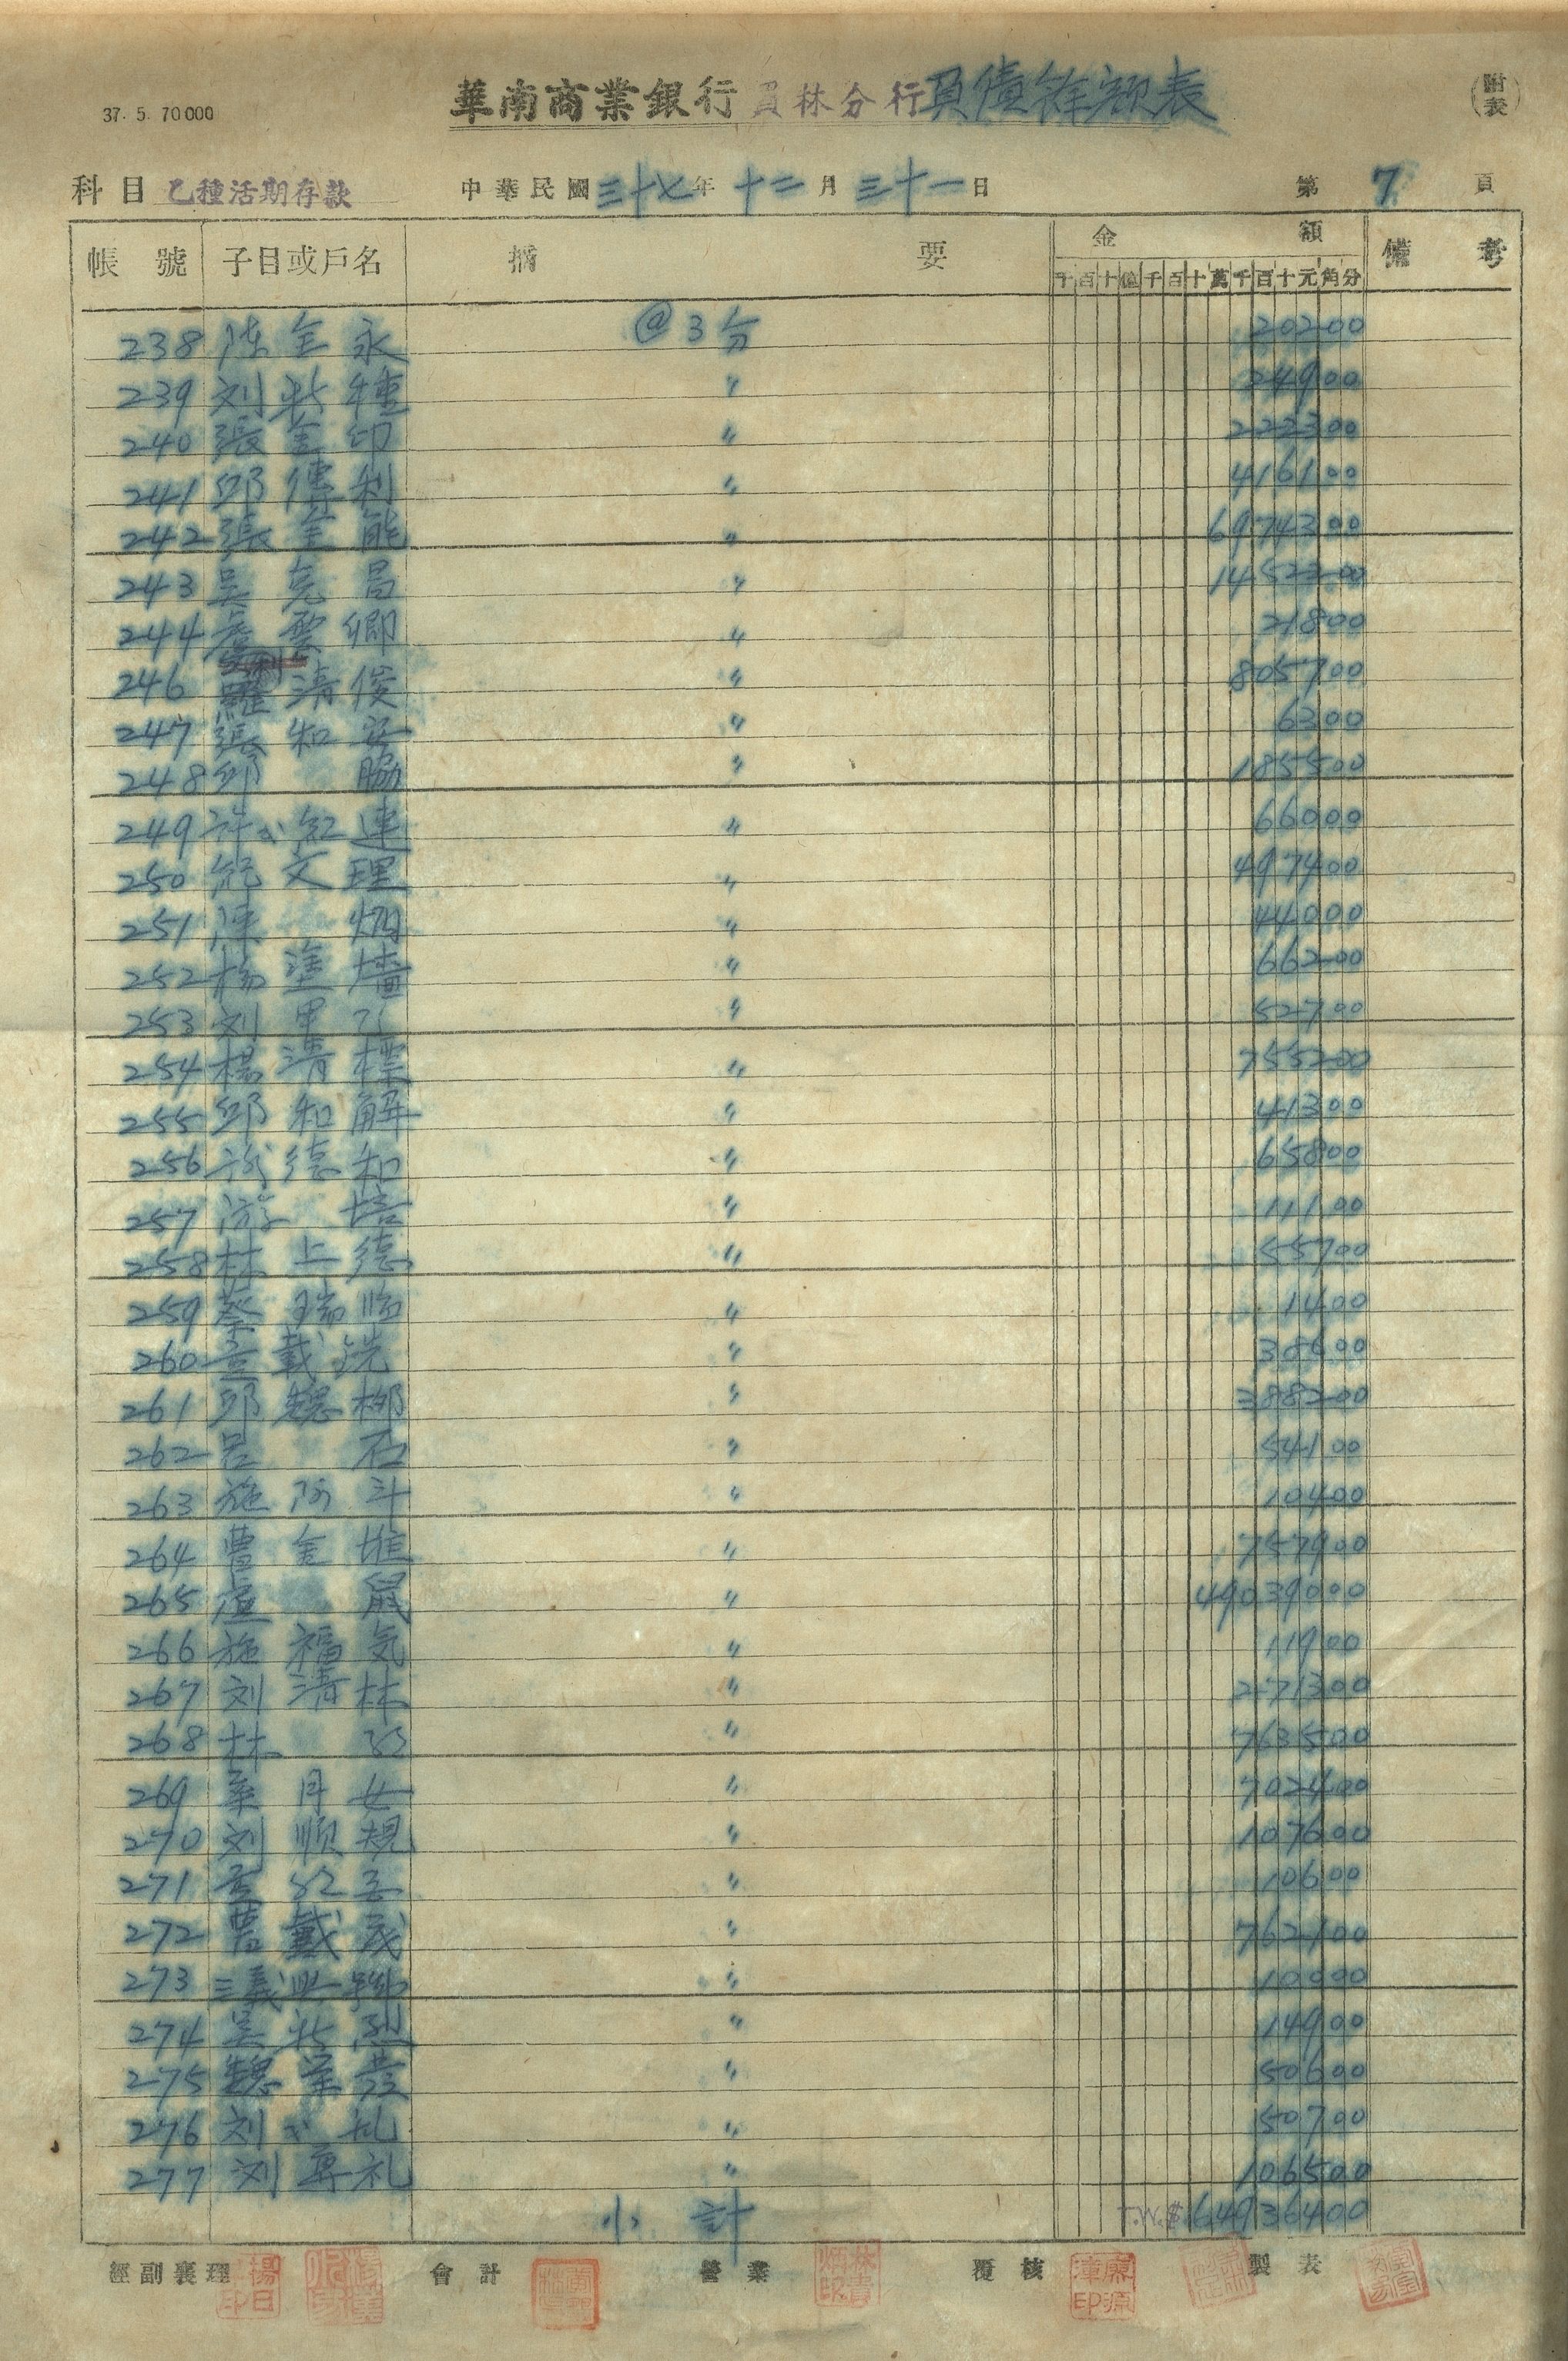 37. 5. 70000
華南商業銀行員林分行負債餘額表
附表
科目 乙種活期存款 中華民國三十七年十二月三十一日 第7頁
帳號 子目或戶名 摘要 金額 備考
千百十億千百十萬千百十元角分
238 陈金永 @3分 20200
239 刘批種 〃 24900
240 張金印 〃 222300
241 邱傳利 〃 416100
242 張金能 〃 6974300
243 吳克昌 〃 1452200
244 詹雲卿 〃 21800
246 羅清俊 〃 805700
247 張和安 〃 6300
248 邱 脇 〃 185500
249 許氏缸連 〃 66000
250 紀文理 〃 497400
251 陳 炯 〃 44000
252 楊塗墻 〃 66200
253 刘 〃 52700
254 楊清標 〃 755200
255 邱和解 〃 41300
256 德和 〃 65800
257 游 培 〃 11100
258 林上德 〃 55700
259 蔡瑞臨 〃 1400
260 戴銑 〃 38600
261 邱魏梛 〃 388200
262 呂 石 〃 54100
263 施阿斗 〃 10400
264 曹金堆 〃 757900
265 盧 鼠 〃 49039000
266 施福気 〃 11900
267 刘清林 〃 271300
268 林 〃 763500
269 月女 〃 702400
270 刘順規 〃 107600
271 〃 10600
272 曹戴茂 〃 762100
273 三義興 〃 10000
274 吳批烈 〃 14900
275 魏業發 〃 50600
276 刘 〃 50700
277 刘專礼 〃 106500
小計 T.W.$ 64936400
經副襄理 會計 營業 覆核 製表